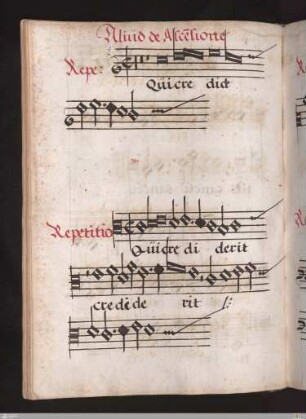 Aliud de Ascēsione
Repe:
Qui cre dict
Repetitio
Qui cre di derit
cre de de rit